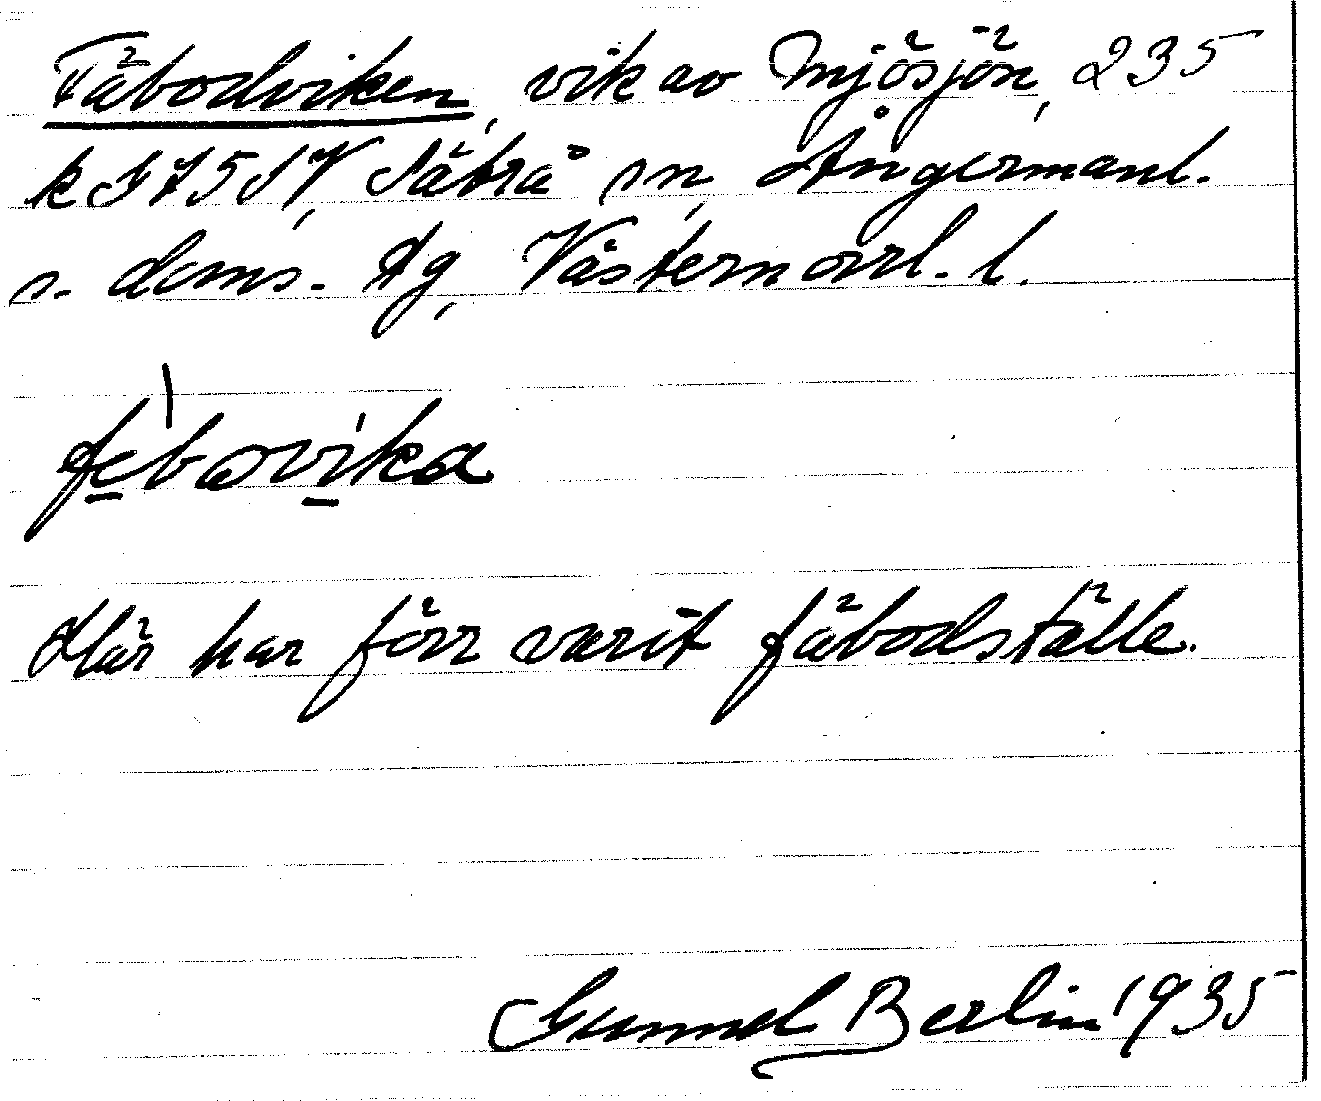 Fäbodviken, vik av Mjösjön, 235
k I 75 SV, Säbrå sn, Ångermanl.
s. doms. tg, Västernorrl. l.
fe̱bovi̱ka
Här har förr varit fäbodställe.
Gunnel Berlin 1935